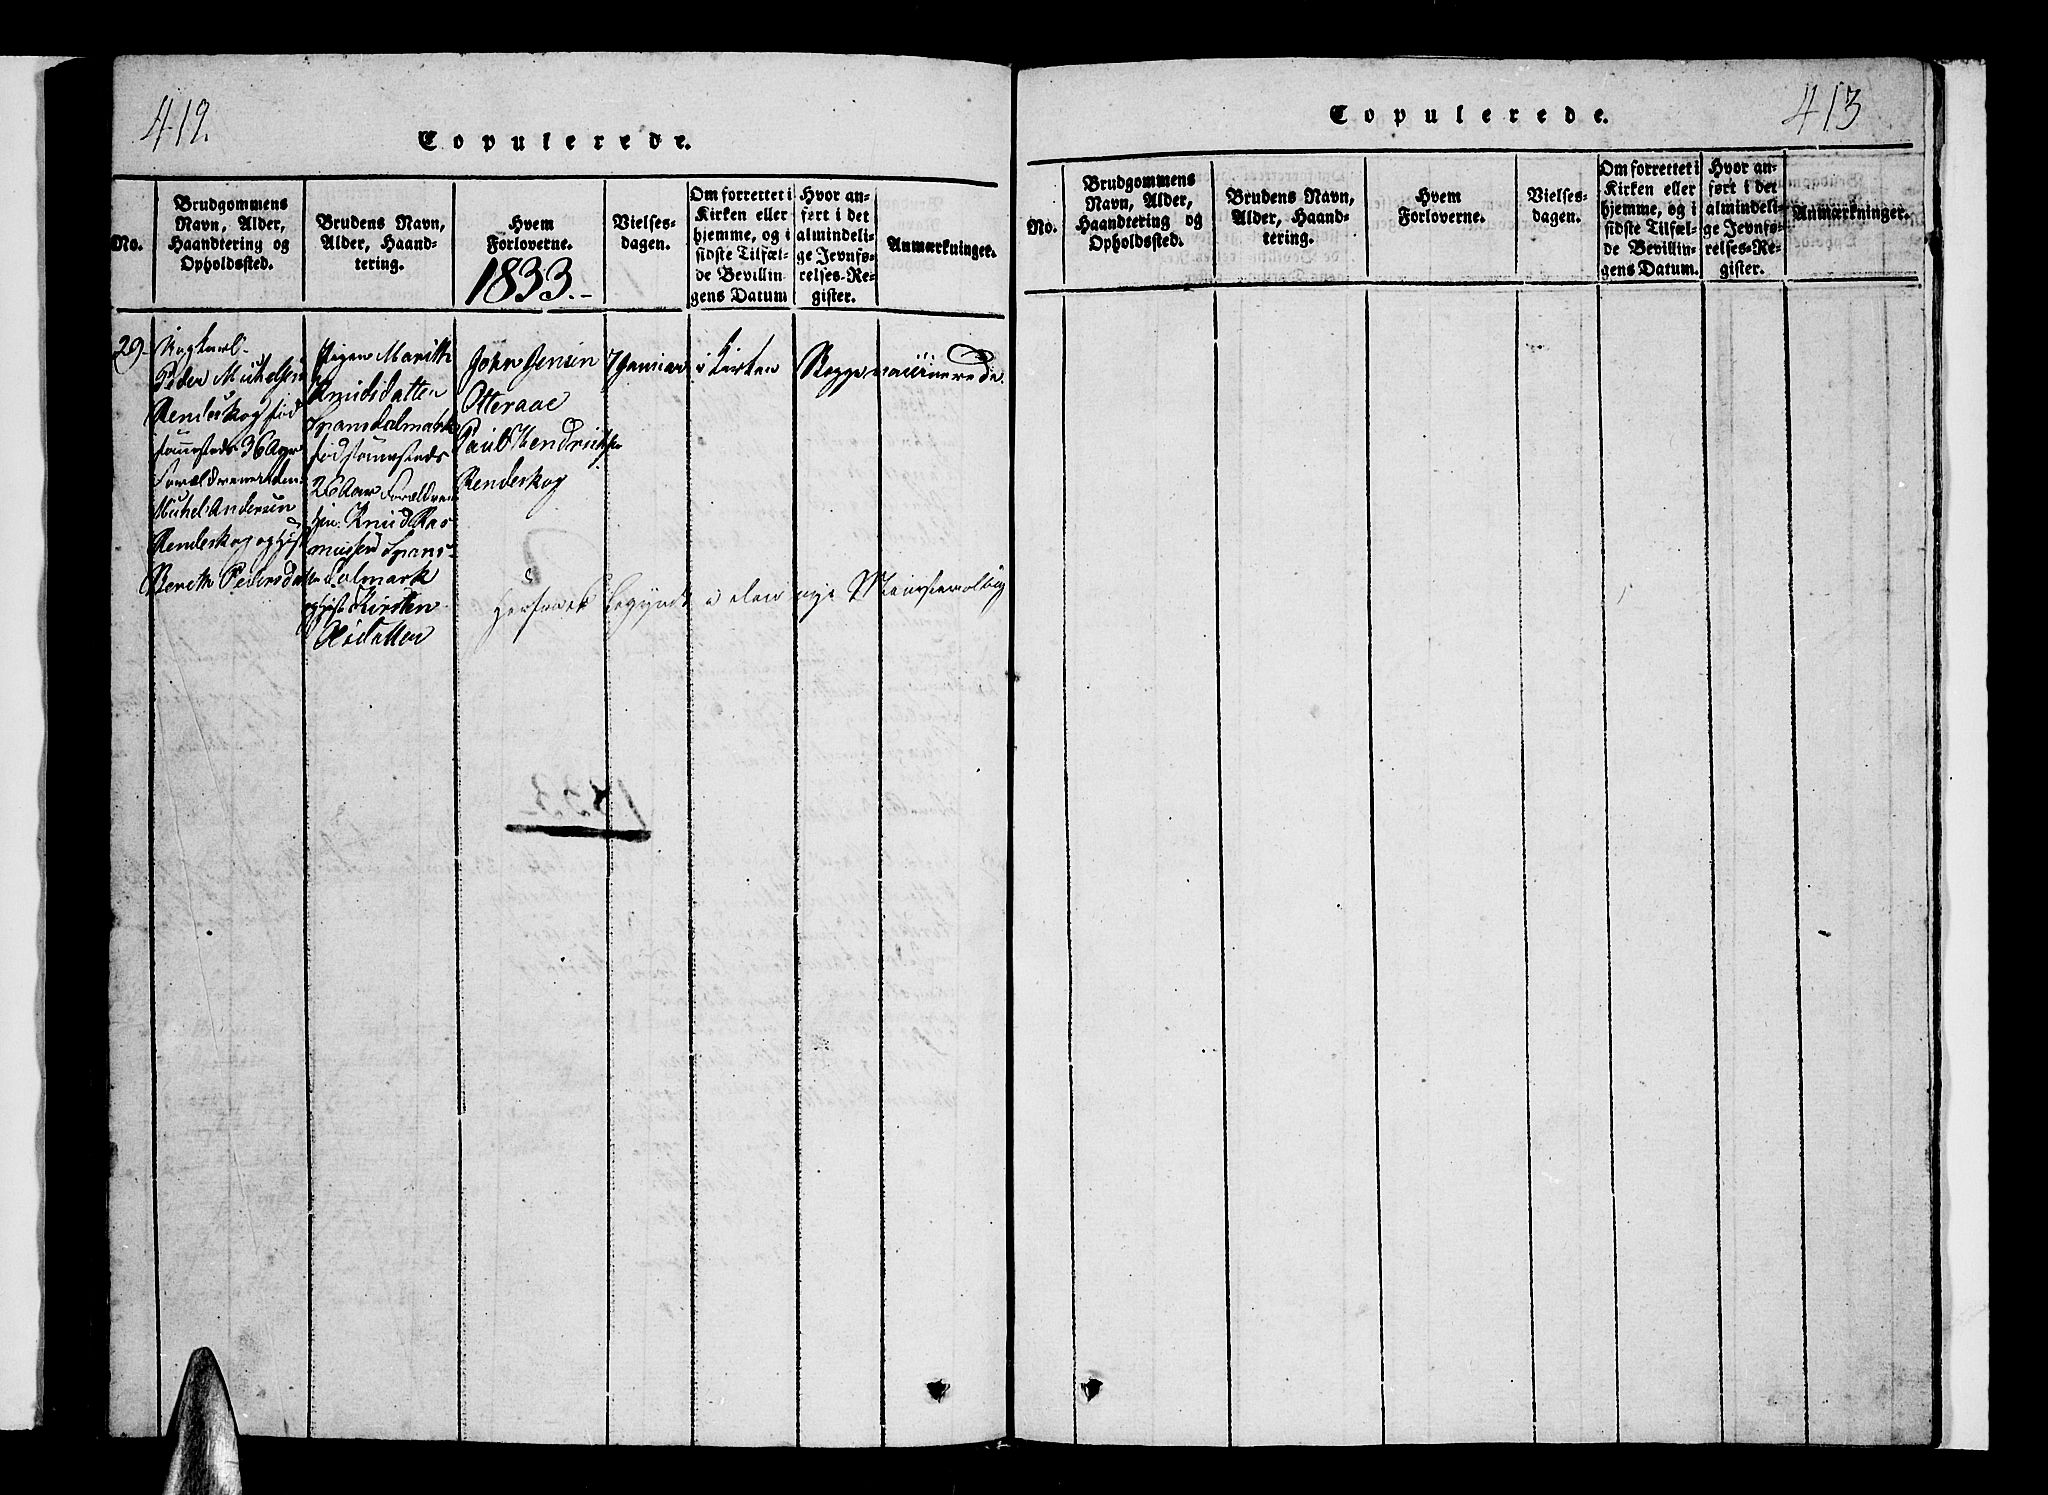 412.
Copulerede.
No.
Brudgommens
Navn, Alder,
Haandtering og
Opholdssted.
Brudens Navn,
Alder, Haand-
tering.
Hvem
Forloverne.
1833.-
Vielses-
dagen.
Om forrettet i
Kirken eller
hjemme, og i
sidste Tilfæl-
de Bevillin-
gens Datum
Hvor an-
ført i det
almindeli-
ge Jevnfø-
relses-Re-
gister.
Anmærkninger.
29.
Peder Michelsen
Renderskog fød
36 Aar
Michel Andersen
Renderskog
Bereth Pedersdatter
Pigen Marith
Knudsdatter
Spansdalmark
26 Aar
Knud Ras
mussen Spans-
dalmark
Kirsten
Olsdatter
John Jensen
Otteraae
Paul Hendrichsen
Renderskog
7 Januar
i Kirken
begyndt i den nye
413
Copulerede.
No.
Brudgommens
Navn, Alder,
Haandtering og
Opholdssted.
Brudens Navn,
Alder, Haand-
tering.
Hvem
Forloverne.
Vielses-
dagen.
Om forrettet i
Kirken eller
hjemme, og i
sidste Tilfæl-
de Bevillin-
gens Datum.
Hvor an-
ført i det
almindeli-
ge Jevnfø-
relses-Re-
gister.
Anmærkninger.